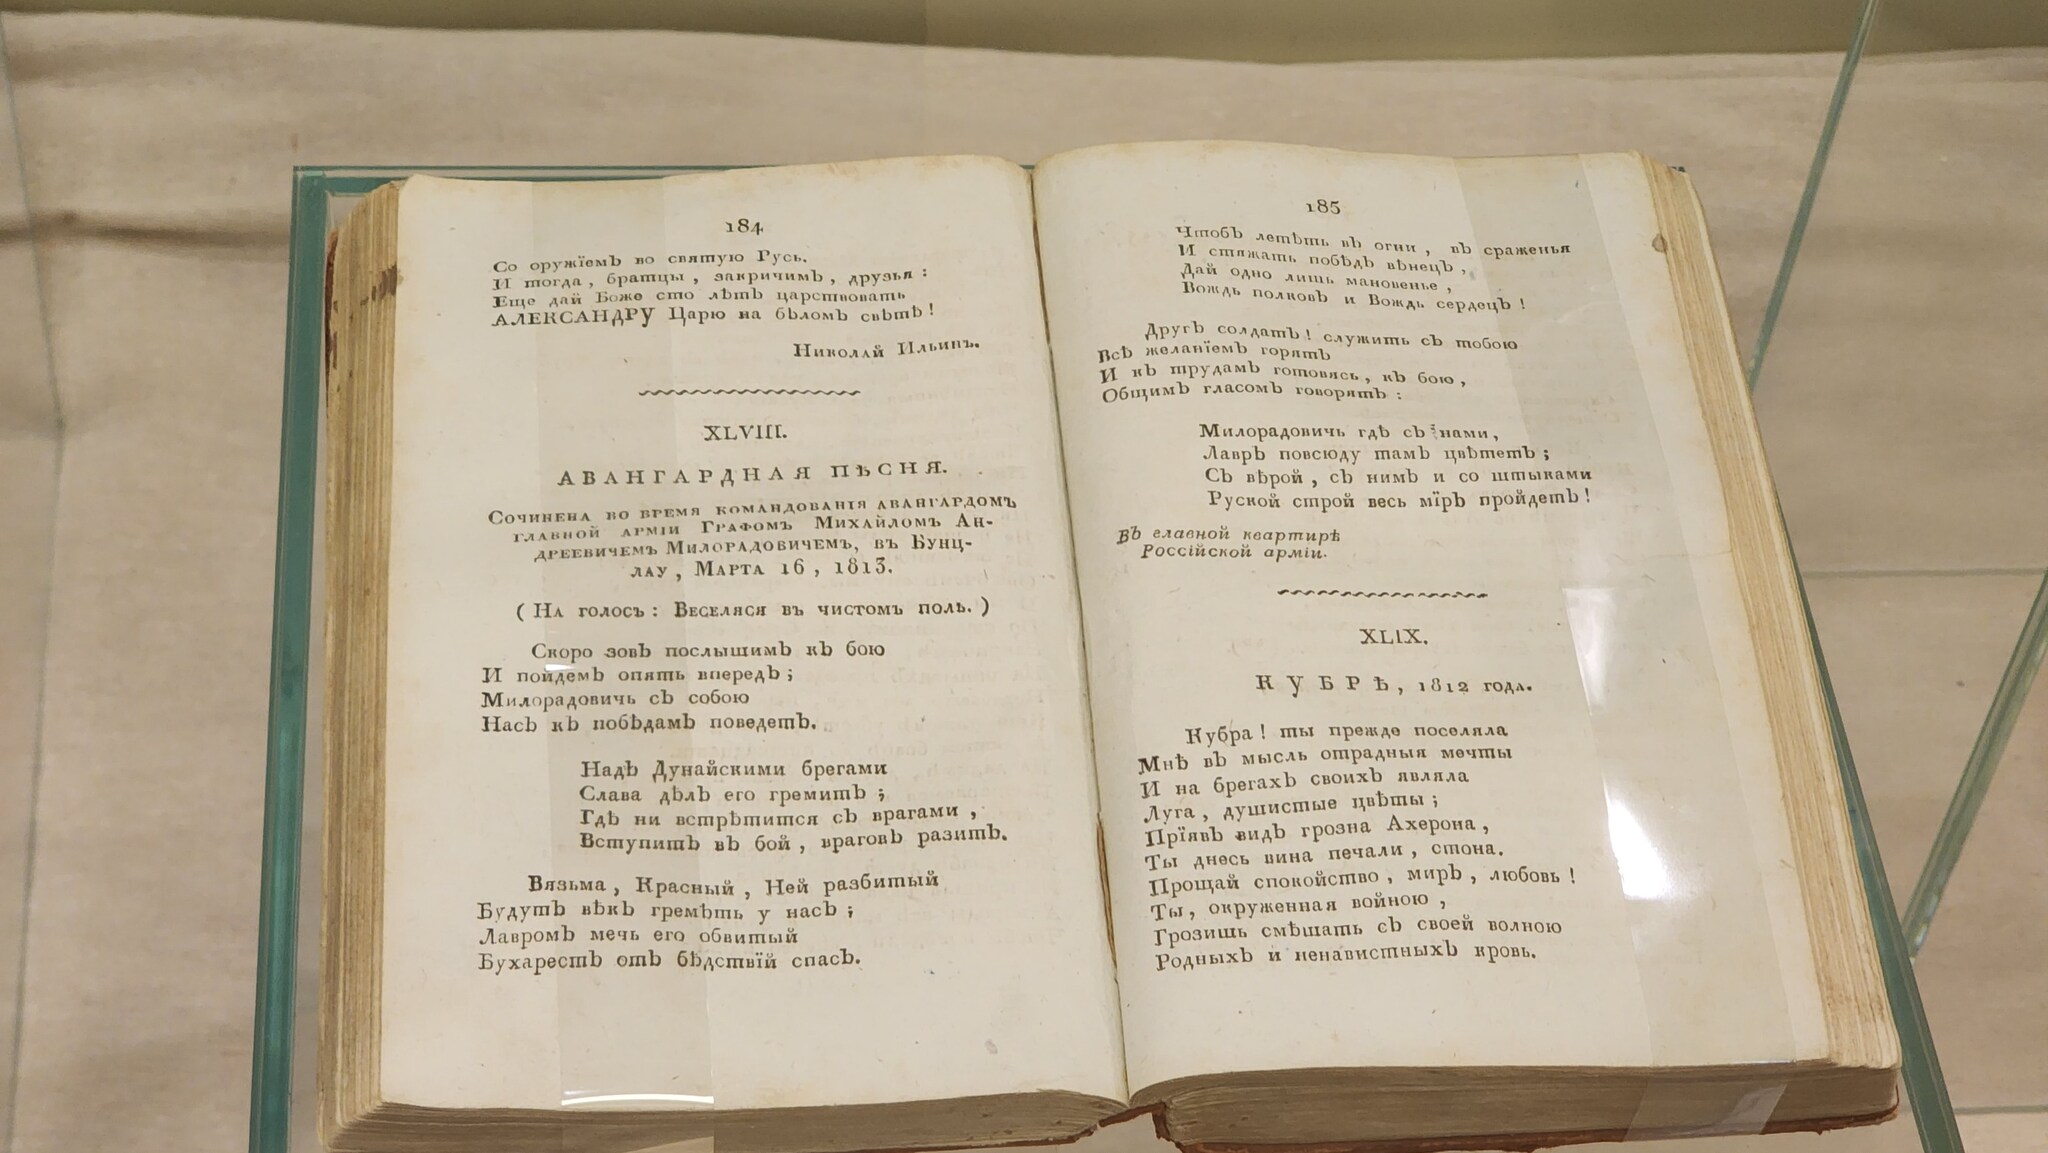 184
Со оружїемъ во святую Русь.
И тогда, братцы, закричимъ, друзья:
Еще дай Боже сто лѣтъ царствовать
АЛЕКСАНДРУ Царю на бѣломъ свѣтѣ!
Николай Ильинъ.
XLVIII.
АВАНГАРДНАЯ ПѢСНЯ.
Сочинена во время командованія авангардомъ
главной арміи Графомъ Михайломъ Ан-
дреевичемъ Милорадовичемъ, въ Бунц-
лау, Марта 16, 1813.
(На голосъ: Веселяся въ чистомъ поль.)
Скоро зовъ послышимъ къ бою
И пойдемъ опять впередъ;
Милорадовичь съ собою
Насъ къ побѣдамъ поведетъ.
Надъ Дунайскими брегами
Слава дѣлъ его гремитъ;
Гдѣ ни встрѣтится съ врагами,
Вступитъ въ бой, враговъ разитъ.
Вязьма, Красный, Ней разбитый
Будутъ вѣкъ гремѣть у насъ;
Лавромъ мечь его обвитый
Бухарестъ отъ бѣдствїй спасъ.
185
Чтобъ летѣть въ огни, въ сраженья
И стяжать побѣдъ вѣнецъ,
Дай одно лишь мановенье,
Вождь полковъ и Вождь сердецъ!
Другъ солдатъ! служить съ тобою
Всѣ желанїемъ горятъ
И къ трудамъ готовясь, къ бою,
Общимъ гласомъ говорятъ:
Милорадовичь гдѣ съ нами,
Лавръ повсюду тамъ цвѣтетъ;
Съ вѣрой, съ нимъ и со штыками
Руской строй весь мїръ пройдетъ!
Въ главной квартирѣ
Россійской арміи.
XLIX.
КУБРѢ, 1812 года.
Кубра! ты прежде поселяла
Мнѣ въ мысль отрадныя мечты
И на брегахъ своихъ являла
Луга, душистые цвѣты;
Прїявъ видъ грозна Ахерона,
Ты днесь вина печали, стона.
Прощай спокойство, миръ, любовь!
Ты, окруженная войною,
Грозишь смѣшать съ своей волною
Родныхъ и ненавистныхъ кровь.